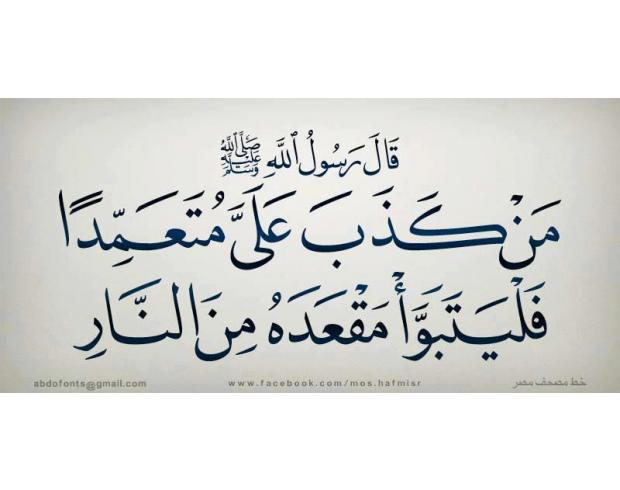 قَالَ رَسُولُ ٱللَّهِ ﷺ
مَنْ كَذَبَ عَلَيَّ مُتَعَمِّدًا
فَلْيَتَبَوَّأْ مَقْعَدَهُ مِنَ النَّارِ
abdofonts@gmail.com www.facebook.com/mos.hafmisr خط مصحف مصر